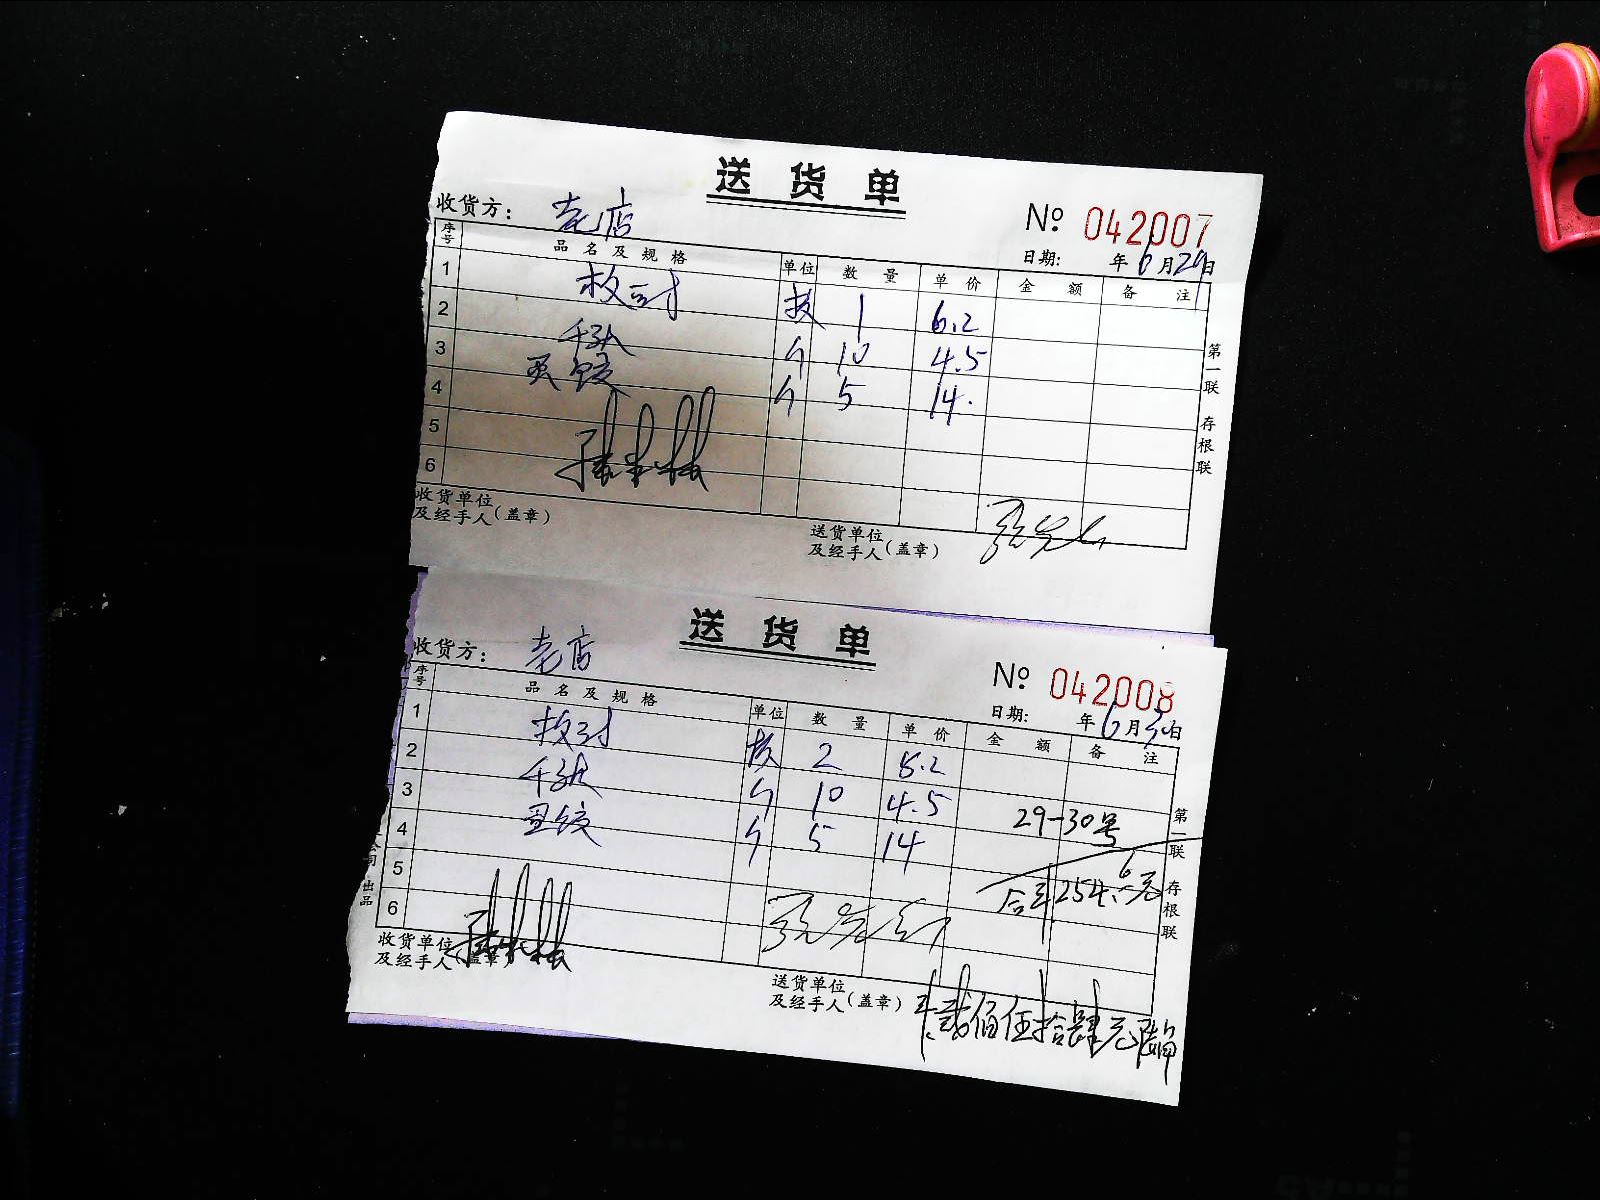 送货单
收货方： 老店
№ 042007
日期: 年 6 月 29 日
序号 品名及规格 单位 数量 单价 金额 备注
1 板 1 6.2
2 千张 个 10 4.5
3 个 5 14.
4
5
6
第一联 存根联
收货单位
及经手人(盖章)
送货单位
及经手人(盖章)
送货单
收货方： 老店
№ 042008
日期: 年 6 月 30 日
序号 品名及规格 单位 数量 单价 金额 备注
1 板 2 5.2
2 千张 个 10 4.5
3 个 5 14
29-30号
4
合计254.6元
5
6
第一联 存根联
公司 出品
收货单位
及经手人(盖章)
送货单位
及经手人(盖章)
贰佰伍拾肆元陆角